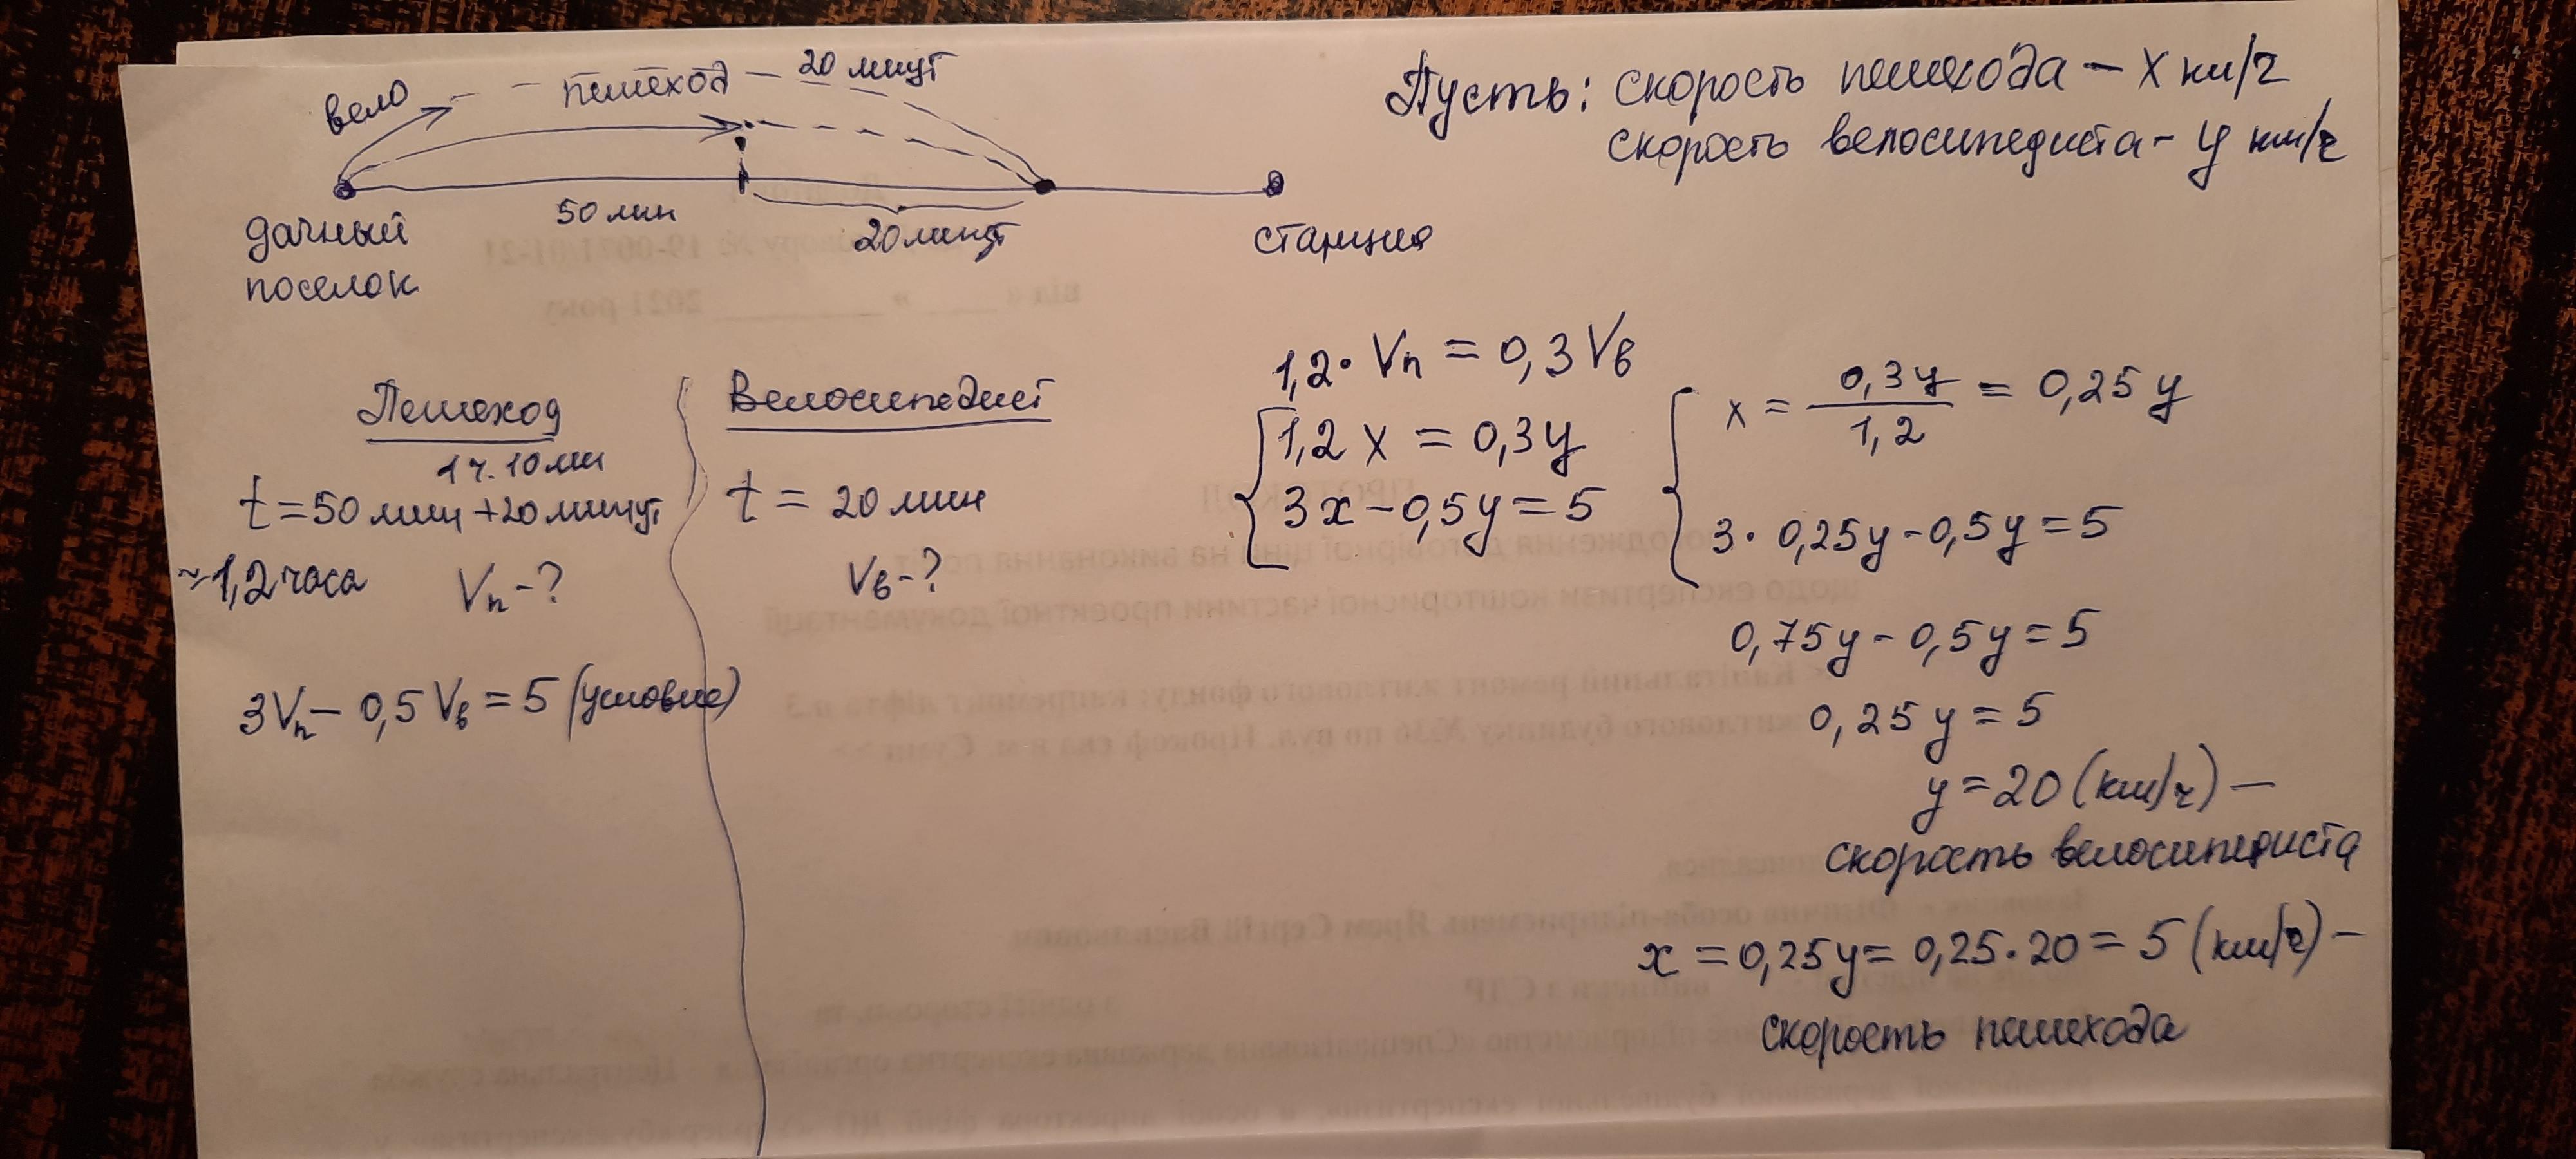 вело
пешеход — 20 минут
50 мин
20 минут
дачный
поселок
станция
Пусть: скорость пешехода – x км/ч
скорость велосипедиста – y км/ч
Пешеход
1ч. 10 мин
t = 50 мин + 20 минут
≈1,2 часа
Vп - ?
3Vп – 0,5 Vв = 5 (условие)
Велосипедист
t = 20 мин
Vв - ?
1,2 · Vп = 0,3 Vв
1,2 x = 0,3y
3x – 0,5y = 5
x = 0,3y / 1,2 = 0,25 y
3 · 0,25y – 0,5y = 5
0,75y – 0,5y = 5
0,25y = 5
y = 20 (км/ч) –
скорость велосипедиста
x = 0,25y = 0,25 · 20 = 5 (км/ч) –
скорость пешехода